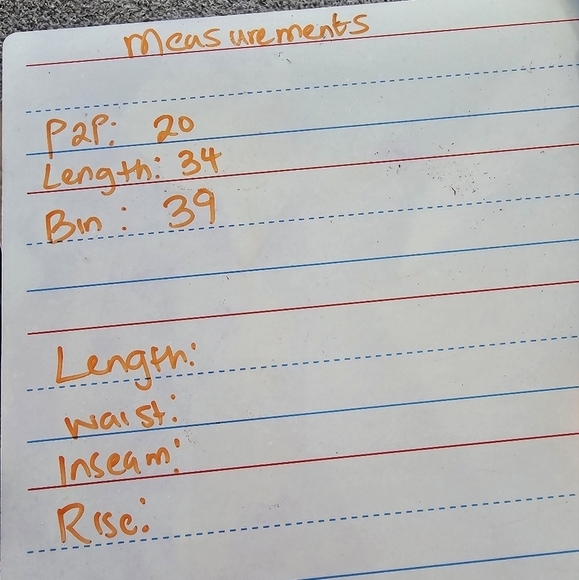 Measurements
P2P: 20
Length: 34
Bin: 39
Length:
Waist:
Inseam:
Rise: